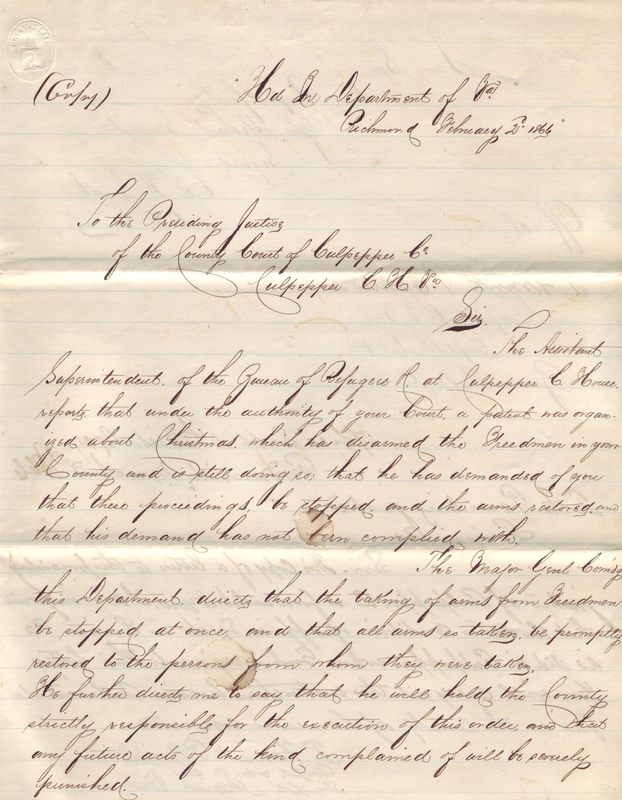 (Copy)
"Hd Qrs Department of Va"
Richmond February 2d 1866"
To the Presiding Justice
of the County Court of Culpepper Co
Culpepper C. H. Va
Sir.
The Assistant
Superintendent, of the Bureau of Refugees &c. at Culpepper C. House.
reports that under the authority of your Court, a patrol was organ-
ized about Christmas, which has disarmed the Freedmen in your
County and is still doing so, that he has demanded of you
that these proceedings, be stopped, and the arms restored, and
that his demand has not been complied with.
The Major Genl Comdg
this Department directs that the taking of arms from Freedmen
be stopped, at once, and that all arms so taken, be promptly
restored to the persons from whom they were taken.
He further directs me to say that he will hold the County
strictly responsible for the execution of this order, and that
any future acts of the kind, complained of will be severely
punished.